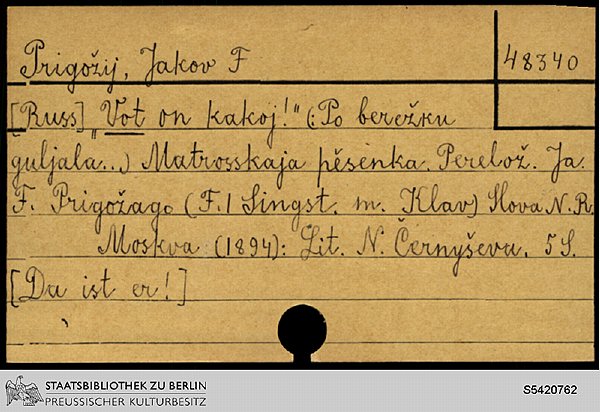 Prigožij, Jakov F
48340
[Russ] „Vot on kakoj!" (:Po berežku
guljala..) Matrosskaja pěsenka. Perelož. Ja.
F. Prigožago (F. 1 Singst. m. Klav) Slova N. R.
Moskva (1894): Lit. N. Černyševa. 5 S.
[Da ist er!]
STAATSBIBLIOTHEK ZU BERLIN
PREUSSISCHER KULTURBESITZ
S5420762